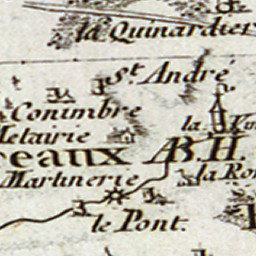 la Quinardier
St. André
Conimbre
la
Metairie
ceaux AB. H.
Martinerie
la Ro
le Pont.